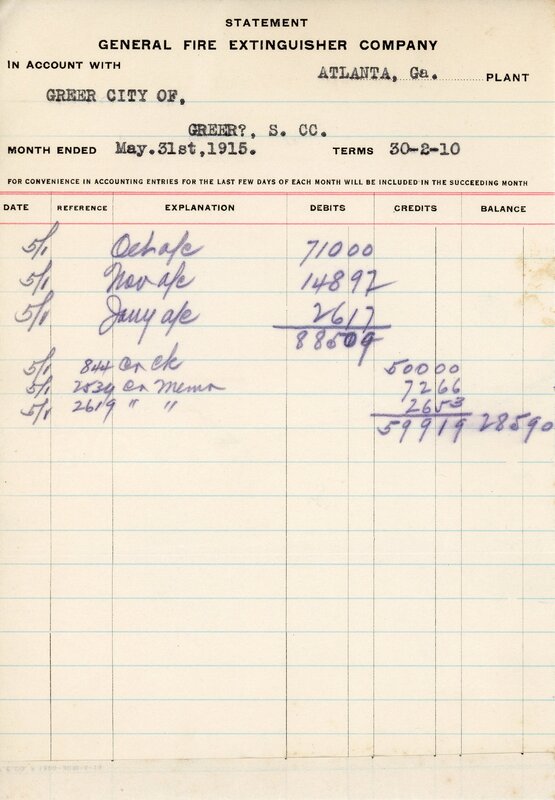 STATEMENT
GENERAL FIRE EXTINGUISHER COMPANY
IN ACCOUNT WITH
ATLANTA, Ga. PLANT
GREER CITY OF,
GREER?, S. CC.
MONTH ENDED May.31st,1915. TERMS 30-2-10
FOR CONVENIENCE IN ACCOUNTING ENTRIES FOR THE LAST FEW DAYS OF EACH MONTH WILL BE INCLUDED IN THE SUCCEEDING MONTH
DATE REFERENCE EXPLANATION DEBITS CREDITS BALANCE
5/1 Oct a/c 71000
5/1 Nov a/c 14892
5/1 Jany a/c 2617
88509
5/1 844 Cr Ck 50000
5/1 2534 Cr Memo 7266
5/1 2619 " " 2653
59919 28590